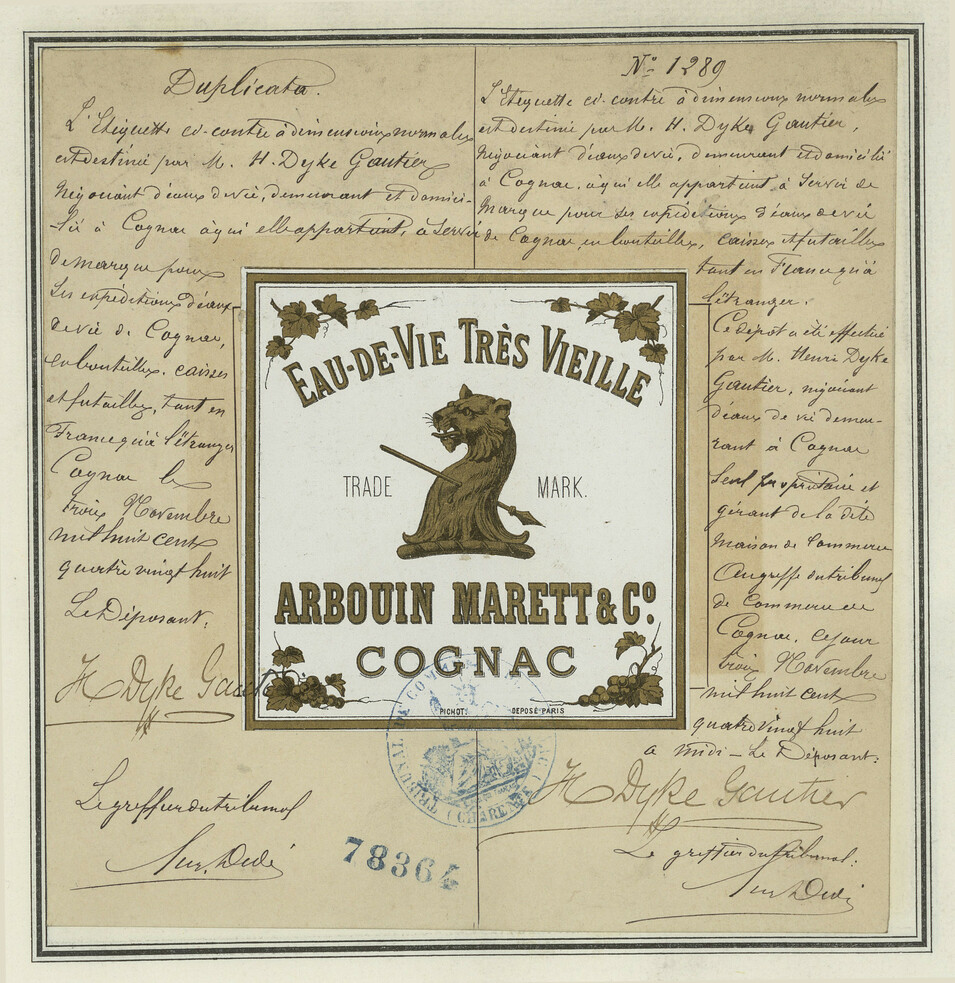 Duplicata.
L'Etiquette ci-contre à dimensions normales
est destinée par M. H. Dyke Gautier
Négociant d'eaux de vie, demeurant et domici-
lié à Cognac à qui elle appartient, à servir
de marque pour
ses expéditions d'eaux
de vie de Cognac,
en bouteilles, caisses
et futailles, tant en
France qu'à l'étranger
Cognac le
trois Novembre
mil huit cent
quatre vingt huit
Le Déposant,
H Dyke Gautier
Le greffier du tribunal
No 1289
L'Etiquette ci-contre à dimensions normales
est destinée par M. H. Dyke Gautier,
Négociant d'eaux de vie, demeurant et domicilié
à Cognac, à qui elle appartient à servir de
Marque pour ses expéditions d'eaux de vie
de Cognac, en bouteilles, caisses et futailles
tant en France qu'à
l'étranger.
Ce dépot a été effectué
par M. Henri Dyke
Gautier, négociant
d'eaux de vie demeu-
rant à Cognac
Seul propriétaire et
gérant de la dite
Maison de Commerce
Au greffe du tribunal
de Commerce de
Cognac, ce jour
trois Novembre
mil huit cent
quatre vingt huit
à midi - Le Déposant:
H Dyke Gautier
Le greffier du tribunal:
EAU-DE-VIE TRÈS VIEILLE
TRADE MARK.
ARBOUIN MARETT & Co.
COGNAC
PICHOT DEPOSÉ PARIS
78364